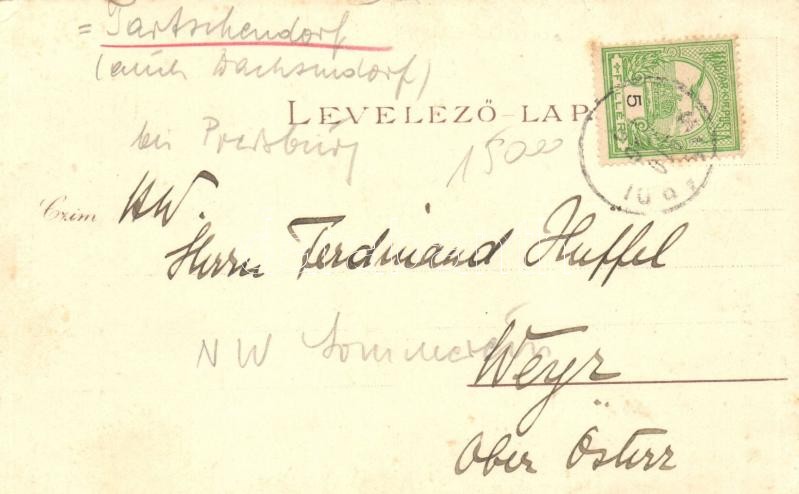 = Tartschendorf
(auch Dachsendorf)
LEVELEZŐ-LAP
bei Pressburg
1500
Czim
HW.
Herrn Ferdinand Huffel
NW Sommerein
Weyr
Ober Österr
MAGYAR KIR. POSTA
5
FILLÉR